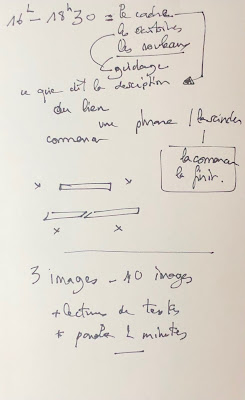 16h - 18h30 = le cadre
les
les rouleaux
guidage
ce que dit la description
du lien
une phrase /
commencer
la commencer
la finir.
3 images - 10 images
+ lecture de textes
* 2 minutes